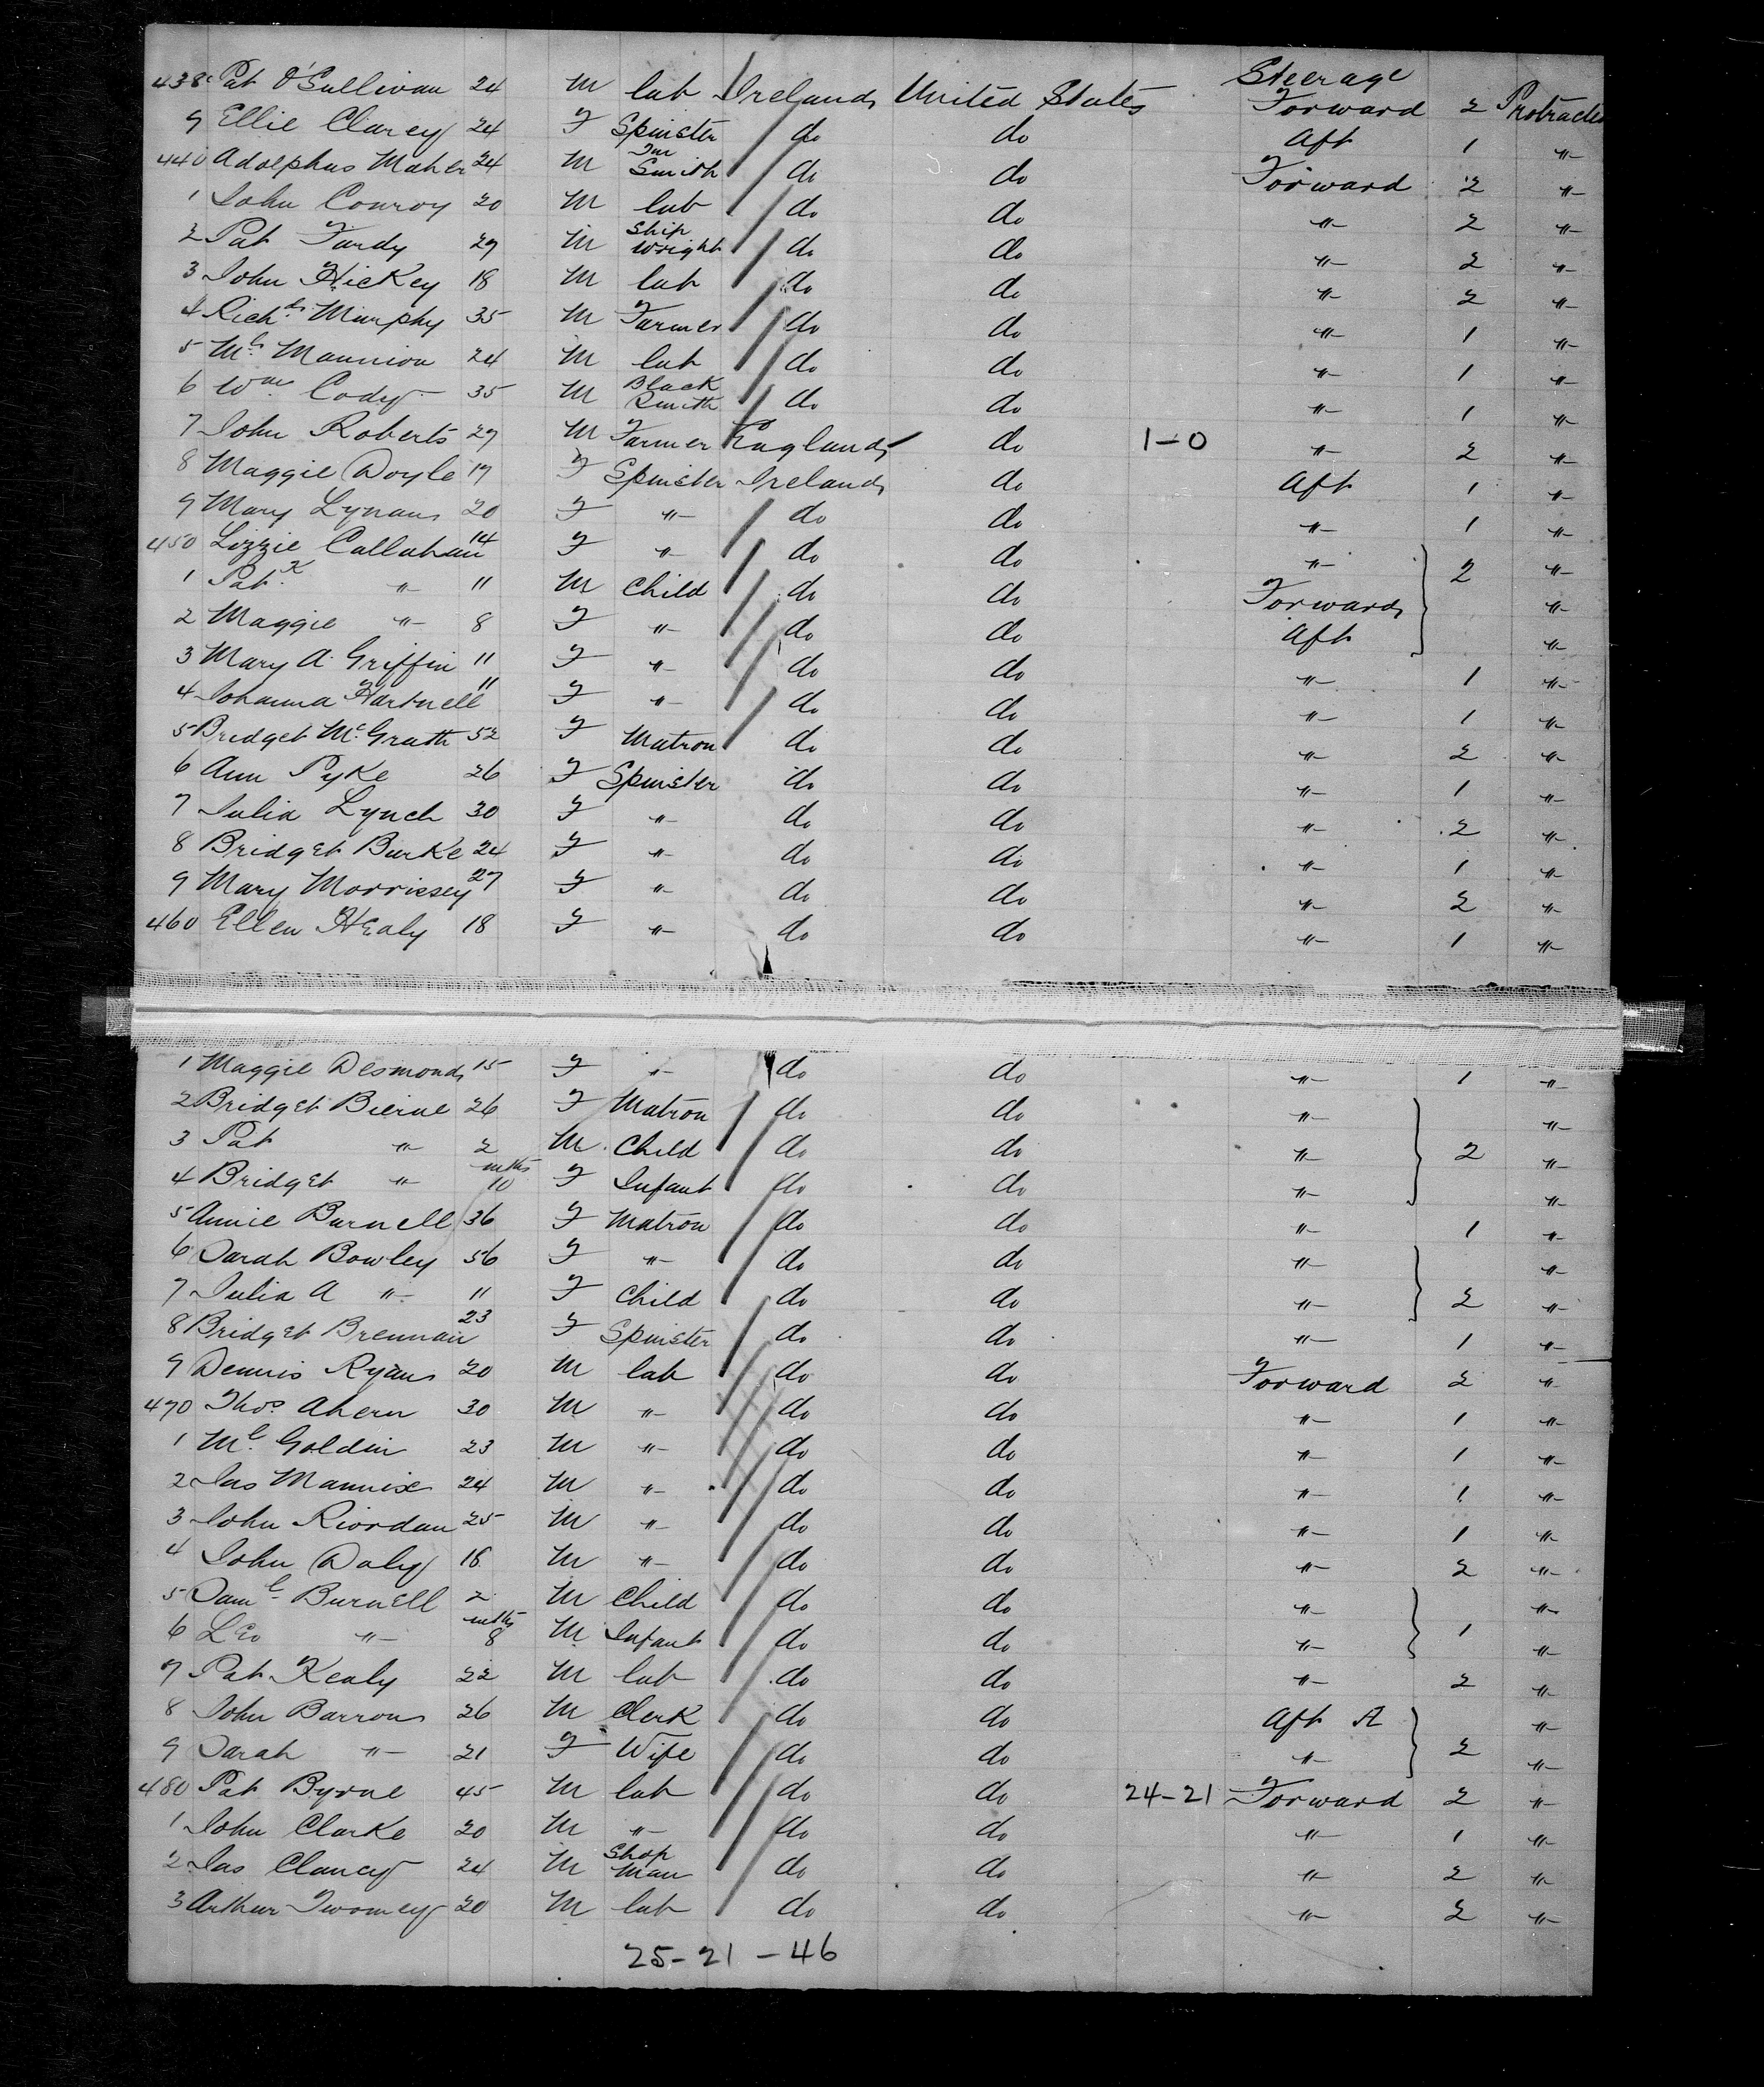 Steerage
438 Pat O'Sullivan 24 M lab Ireland United States Forward 2 Protracted
9 Ellie Clarey 24 F Spinster do do Aft 1 "
440 Adolphus Maher 24 M Tin Smith do do Forward 2 "
1 John Conroy 20 M lab do do " 2 "
2 Pat Furdy 29 M Ship Wright do do " 2 "
3 John Hickey 18 M lab do do " 2 "
4 Richd Murphy 35 M Farmer do do " 1 "
5 Ml Mannion 24 M lab do do " 1 "
6 Wm Cody 35 M Black Smith do do " 1 "
7 John Roberts 29 M Farmer England do 1-0 " 2 "
8 Maggie Doyle 19 F Spinster Ireland do Aft 1 "
9 Mary Lynam 20 F " do do " 1 "
450 Lizzie Callahan 14 F " do do " 2 "
1 Patk " 11 M Child do do Forward "
2 Maggie " 8 F " do do Aft "
3 Mary A Griffin 11 F " do do " 1 "
4 Johanna Hartnell 11 F " do do " 1 "
5 Bridget McGrath 52 F Matron do do " 2 "
6 Ann Pyke 26 F Spinster do do " 1 "
7 Julia Lynch 30 F " do do " 2 "
8 Bridget Burke 24 F " do do " 1 "
9 Mary Morrissey 27 F " do do " 2 "
460 Ellen Healy 18 F " do do " 1 "
1 Maggie Desmond 15 F " do do " 1 "
2 Bridget Bierne 26 F Matron do do " "
3 Pat " 2 M Child do do " 2 "
4 Bridget " mths 10 F Infant do do " "
5 Annie Burnell 36 F Matron do do " 1 "
6 Sarah Bowley 56 F " do do " "
7 Julia A " 11 F Child do do " 2 "
8 Bridget Brennan 23 F Spinster do do " 1 "
9 Dennis Ryan 20 M lab do do Forward 2 "
470 Thos Ahern 30 M " do do " 1 "
1 Ml Goldin 23 M " do do " 1 "
2 Jas Mannix 24 M " do do " 1 "
3 John Riordan 25 M " do do " 1 "
4 John Daly 18 M " do do " 2 "
5 Saml Burnell 2 M Child do do " "
6 Leo " mths 8 M Infant do do " 1 "
7 Pat Kealy 22 M lab do do " 2 "
8 John Barron 26 M Clerk do do Aft A "
9 Sarah " 21 F Wife do do " 2 "
480 Pat Byrne 45 M lab do do 24-21 Forward 2 "
1 John Clarke 20 M " do do " 1 "
2 Jas Clancy 24 M Shop Man do do " 2 "
3 Arthur Twomey 20 M lab do do " 2 "
25-21-46